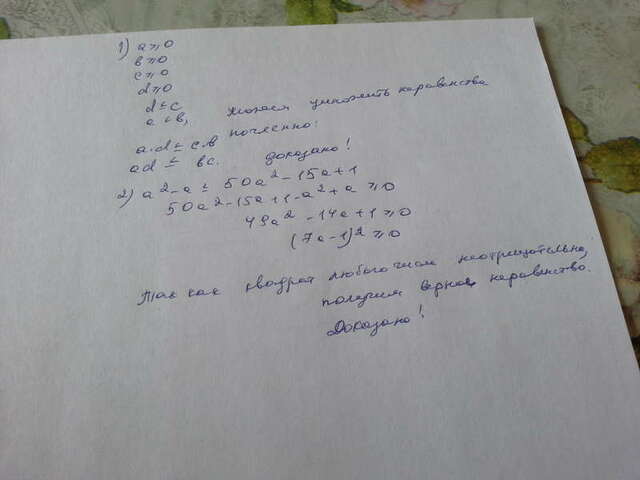 1) a ≥ 0
в ≥ 0
c ≥ 0
d ≥ 0
d ≤ c
a < в, можем умножить неравенства
a·d ≤ c·в почленно:
ad ≤ вc. доказано!
2) a² - a ≤ 50a² - 15a + 1
50a² - 15a + 1 - a² + a ≥ 0
49a² - 14a + 1 ≥ 0
(7a - 1)² ≥ 0
Так как квадрат любого числа неотрицательно,
получим верное неравенство.
Доказано!